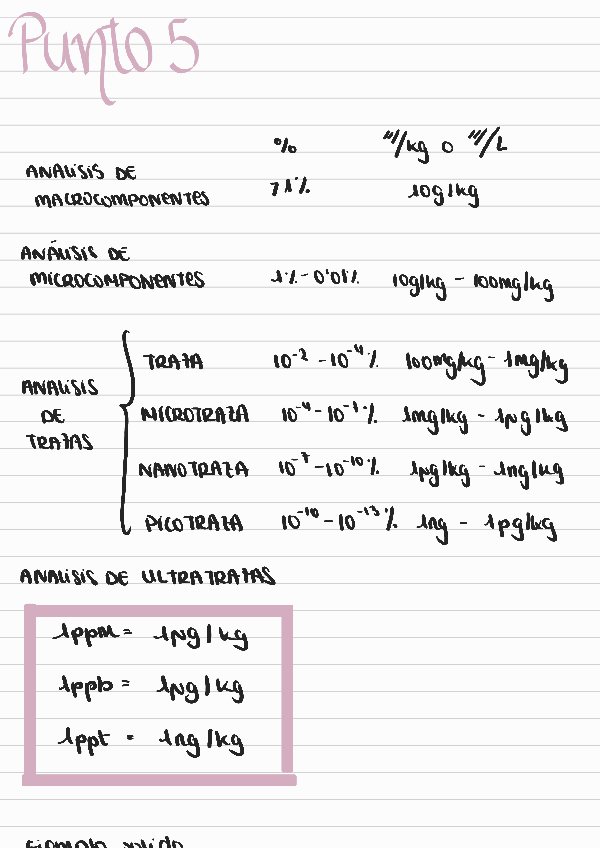 Punto 5
% m/kg o m/L
ANALISIS DE
MACROCOMPONENTES >1% 10g/kg
ANÁLISIS DE
MICROCOMPONENTES 1% - 0'01% 10g/kg - 100mg/kg
TRAZA 10⁻² - 10⁻⁴% 100mg/kg - 1mg/kg
ANALISIS
DE
TRAZAS
MICROTRAZA 10⁻⁴ - 10⁻⁷% 1mg/kg - 1µg/kg
NANOTRAZA 10⁻⁷ - 10⁻¹⁰% 1µg/kg - 1ng/kg
PICOTRAZA 10⁻¹⁰ - 10⁻¹³% 1ng - 1pg/kg
ANALISIS DE ULTRATRAZAS
1ppm = 1µg/kg
1ppb = 1µg/kg
1ppt = 1ng/kg